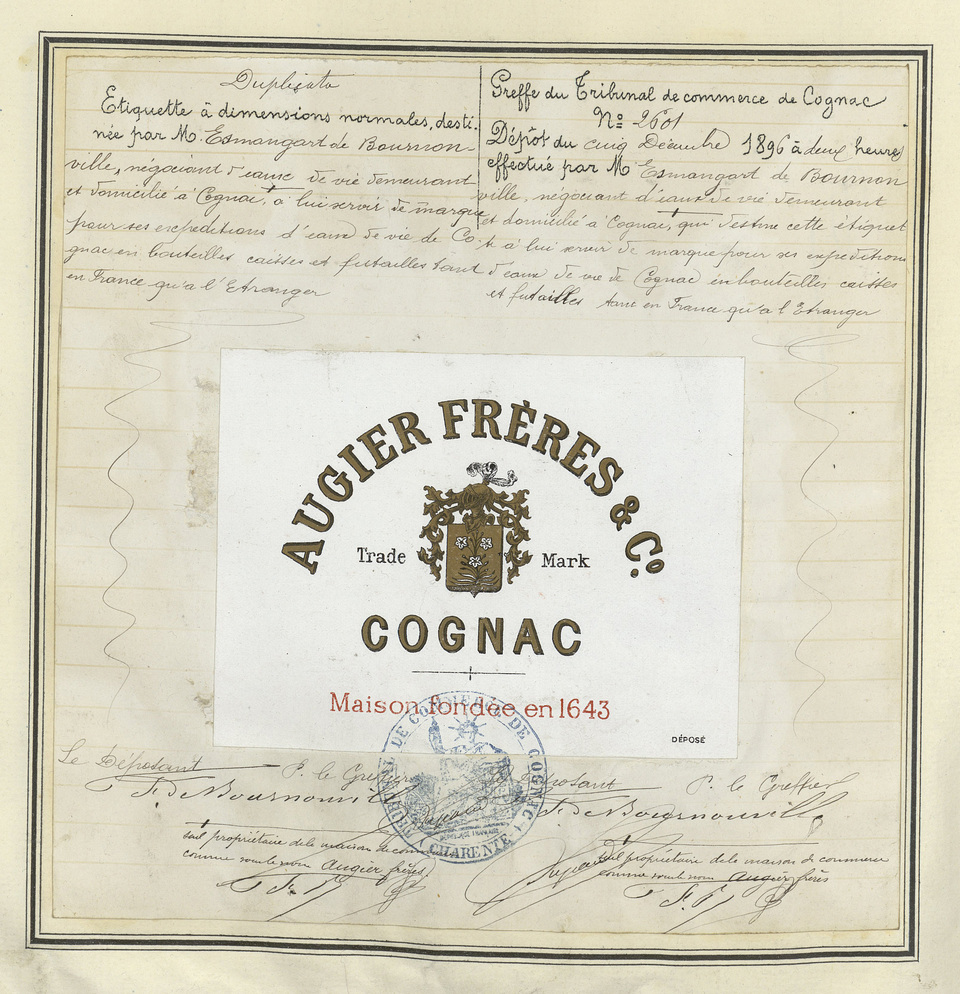 Duplicata
Etiquette à dimensions normales, desti-
née par Mr Esmangart de Bournon-
ville, négociant d'eaux de vie demeurant
et domicilié à Cognac, à lui servir de marque
pour ses expéditions d'eaux de vie de Co-
gnac en bouteilles caisses et futailles tant
en France qu'a l'Etranger
Greffe du Tribunal de commerce de Cognac
No 2601
Dépôt du cinq Décembre 1896 à deux heures
effectué par Mr Esmangart de Bournon
ville, négociant d'eaux de vie demeurant
et domicilié à Cognac, qui destine cette étiquet
te à lui servir de marque pour ses expéditions
d'eaux de vie de Cognac en bouteilles caisses
et futailles tant en France qu'a l'Etranger
AUGIER FRÈRES & Co.
Trade Mark
COGNAC
Maison fondée en 1643
DÉPOSÉ
TRIBUNAL DE COMMERCE DE COGNAC
CHARENTE
Le Déposant
P. le Greffier
F. de Bournonville
seul propriétaire de la maison de commerce
connue sous le nom Augier frères
Le Déposant
P. le Greffier
F. de Bournonville
seul propriétaire de la maison de commerce
connue sous le nom Augier frères